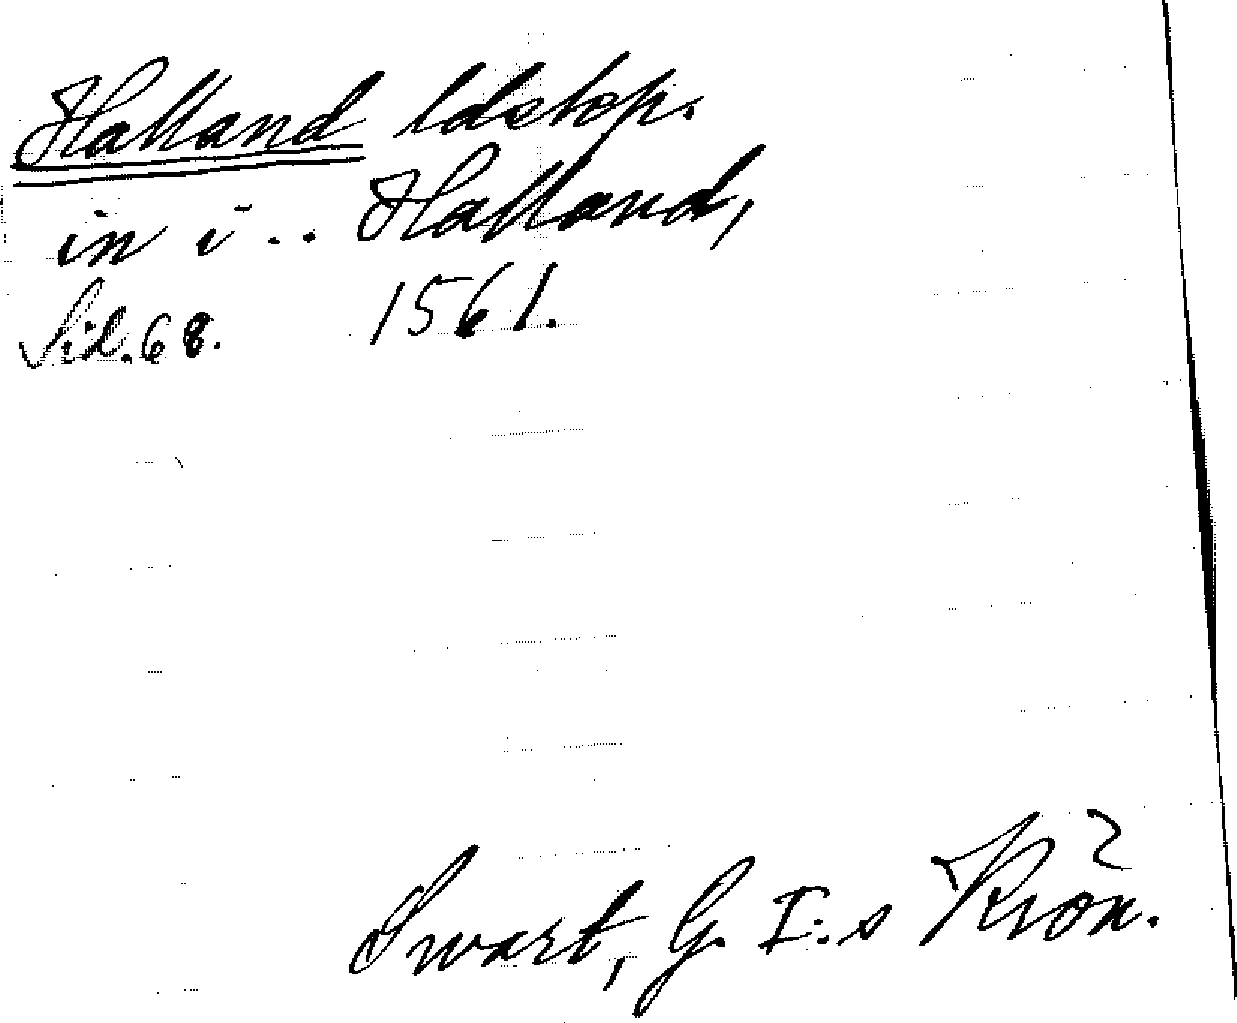 Halland ldskp.
in i .. Halland,
Sid. 68. 1561.
Swart, G. I:s Krön. 2